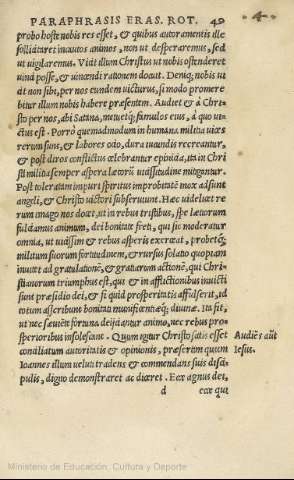 PARAPHRASIS ERAS. ROT. 49
probo hoste nobis res esset, & quibus autoramentis ille
sollicitaret incautos animos, non ut desperaremus, sed
ut uigilaremus. Vicit illum Christus ut nobis ostenderet
uinci posse, & uincendi rationem docuit. Deniq; nobis ui
cit non sibi, per nos eundem uicturus, si modo promere
bitur illum nobis habere præsentem. Audiet & à Chri-
sto per nos, abi Satana, metuetq; famulos eius, à quo ui-
ctus est. Porrò quemadmodum in humana militia uices
rerum sunt, & labores ocio, dura iucundis recreantur,
& post diros conflictus celebrantur epinicia, ita in Chri
sti militia semper aspera lætorũ uicissitudine mitigantur.
Post toleratam impuri spiritus improbitatẽ mox adsunt
angeli, & Christo uictori subseruiunt. Hæc uideliæt re
rum imago nos docet, ut in rebus tristibus, spe lætorum
fulciamus animum, dei bonitate freti, qui sic moderatur
omnia, ut uicissim & rebus asperis exerceat, probetq;
militum suorum fortitudinem, & rursus solatio quopiam
inuitet ad gratulationẽ, & gratiarum actionẽ, qui Chri-
stianorum triumphus est, qui & in afflictionibus inuicti
sunt præsidio dei, & si quid prosperitatis affulserit, id
totum ascribunt bonitati munificentiæq; diuinæ. Ita fit,
ut nec sæuiẽte fortuna deijciantur animo, nec rebus pro-
sperioribus insolescant. Quum igitur Christo satis esset
Audiẽs aũt
conciliatum autoritatis & opinionis, præsertim quum
Iesus.
Ioannes illum uelut tradens & commendans suis disci-
pulis, digito demonstraret ac diceret. Ecce agnus dei,
d ecce qui
Ministerio de Educación, Cultura y Deporte